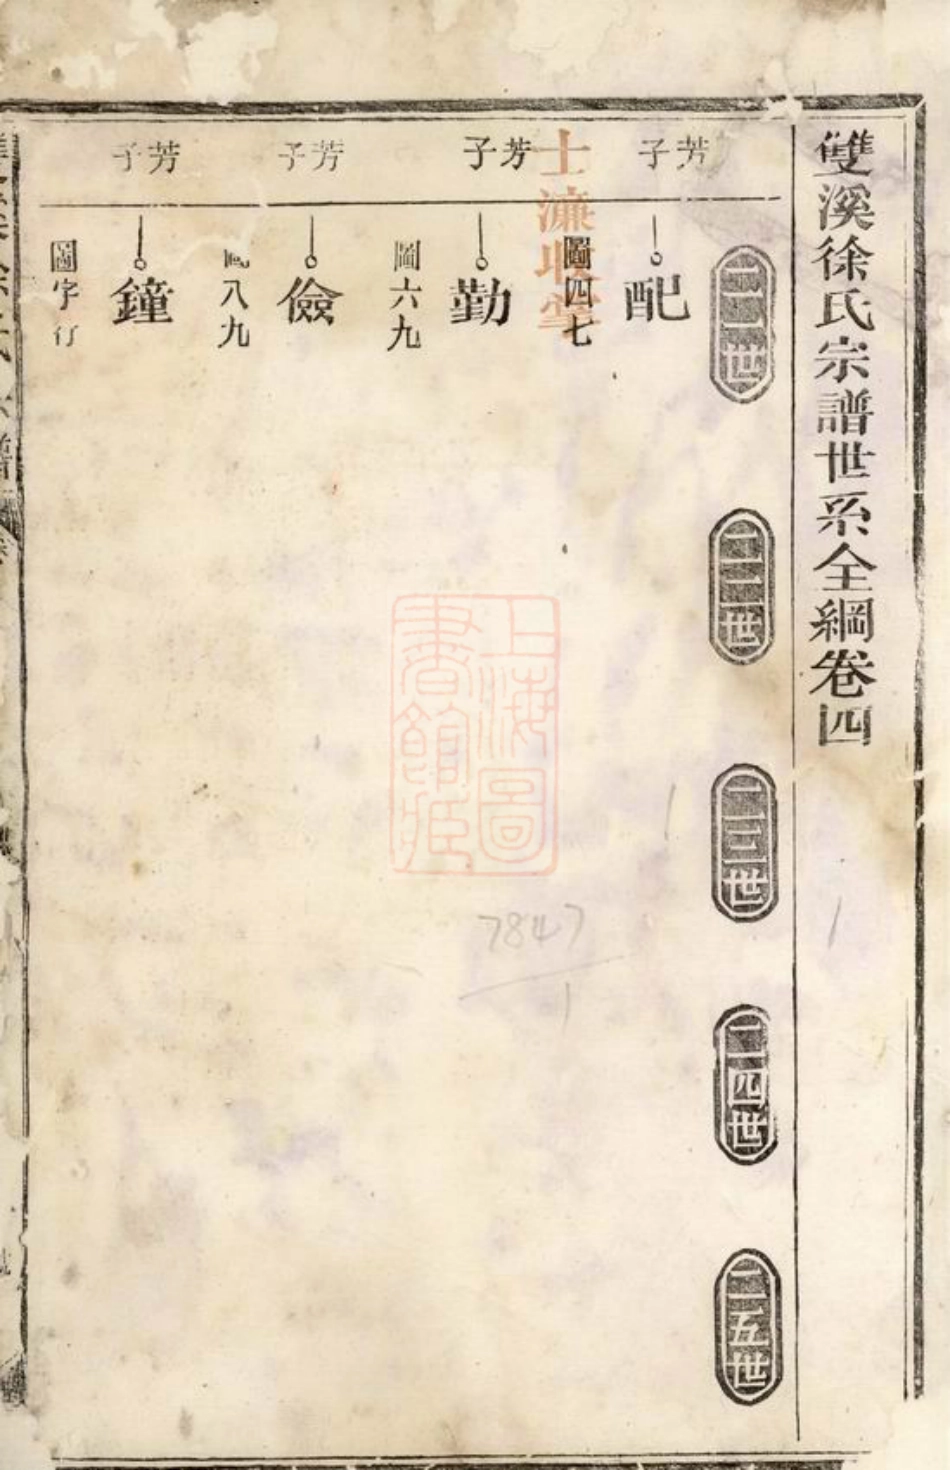 雙溪徐氏宗譜世系全綱卷四
二一世
二二世
二三世
二四世
二五世
芳子
配
圖四七
士濂收
芳子
勤
圖六九
芳子
儉
八九
芳子
鐘
圖字行
上海圖書館藏
7847
1